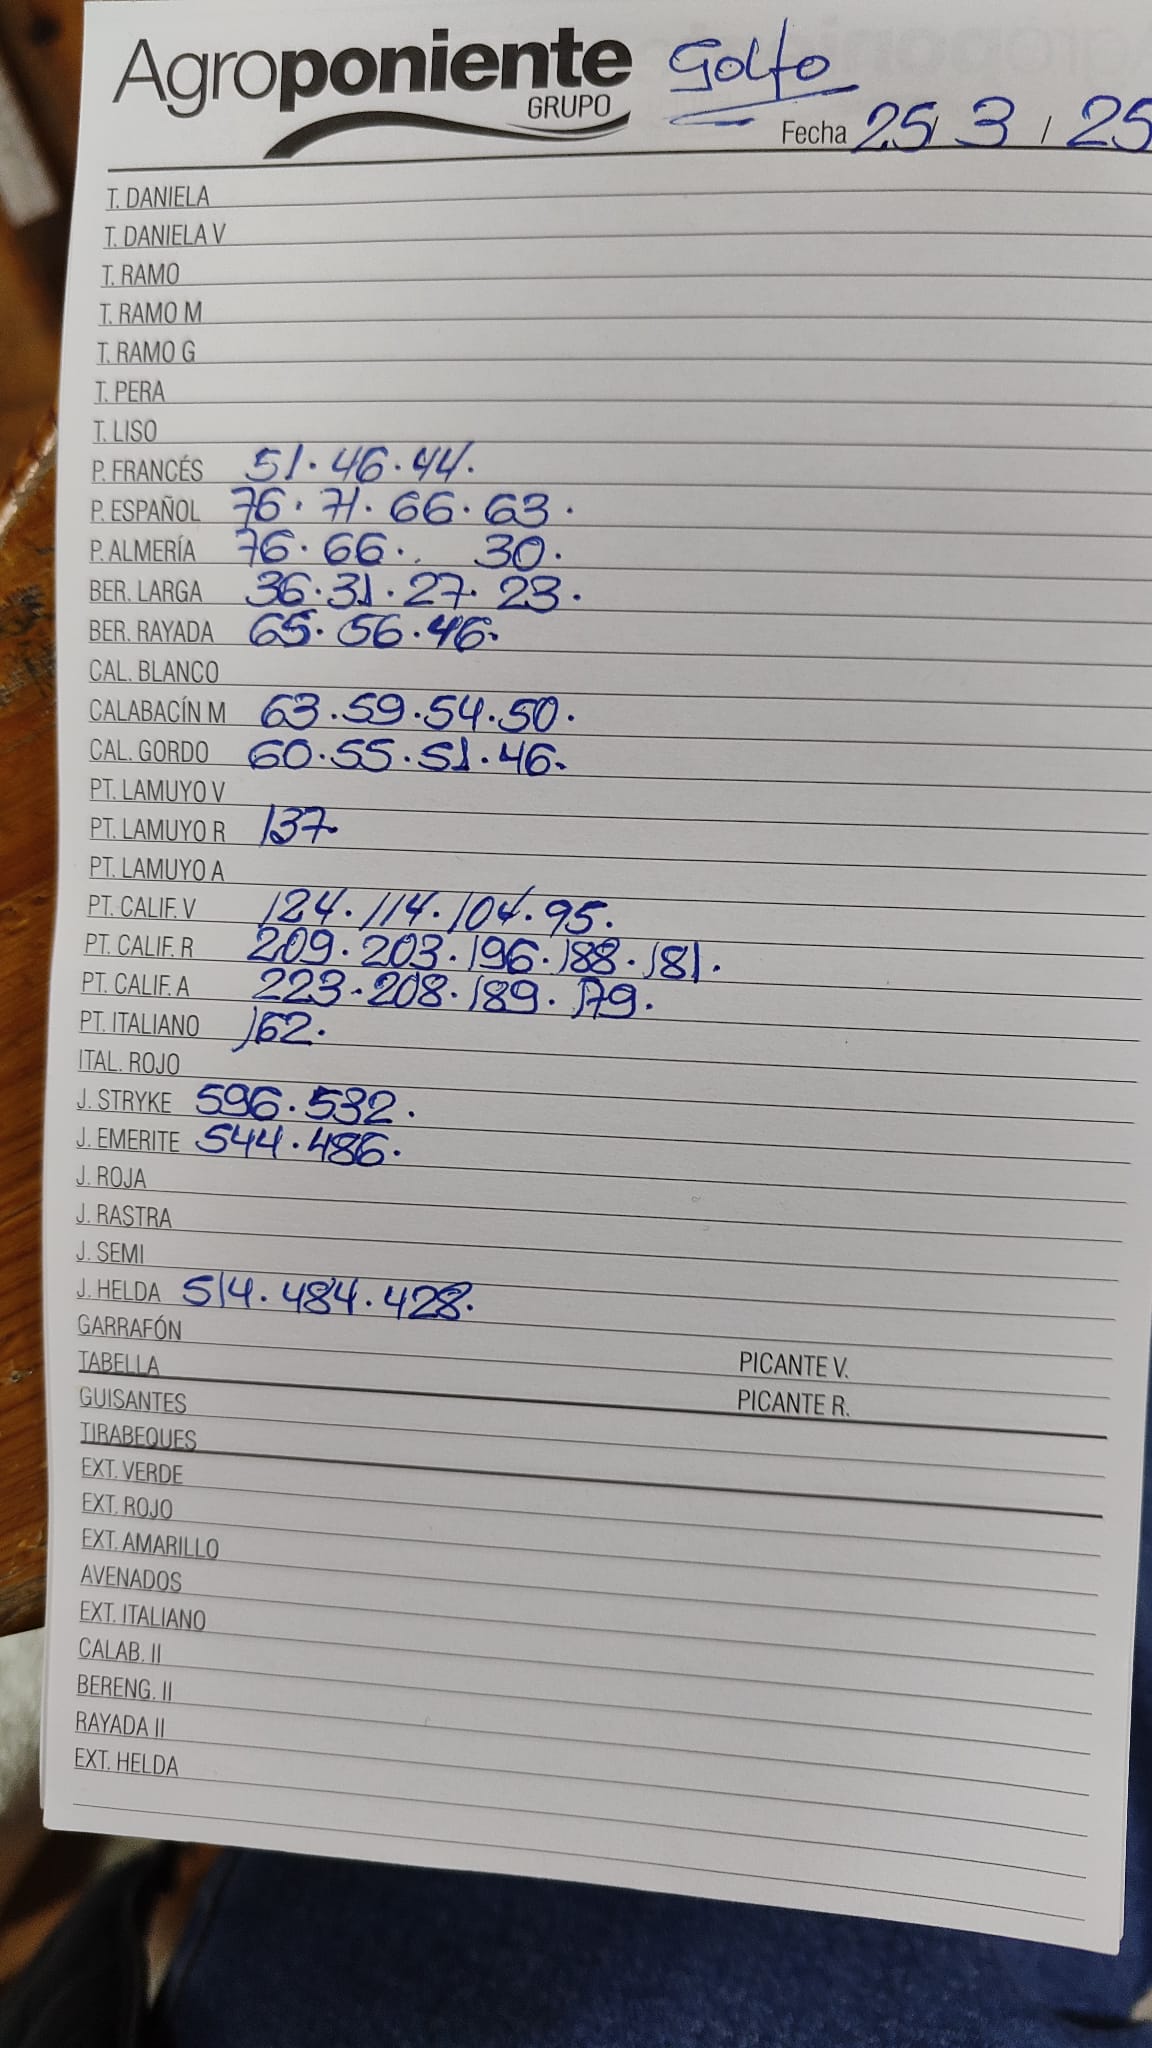 Agroponiente
GRUPO
Golfo
Fecha 25/ 3 / 25
T. DANIELA
T. DANIELA V
T. RAMO
T. RAMO M
T. RAMO G
T. PERA
T. LISO
P. FRANCÉS 51. 46. 44.
P. ESPAÑOL 76. 71. 66. 63.
P. ALMERÍA 76. 66. 30.
BER. LARGA 36. 31. 27. 23.
BER. RAYADA 65. 56. 46.
CAL. BLANCO
CALABACÍN M 63. 59. 54. 50.
CAL. GORDO 60. 55. 51. 46.
PT. LAMUYO V
PT. LAMUYO R 137.
PT. LAMUYO A
PT. CALIF. V 124. 114. 104. 95.
PT. CALIF. R 209. 203. 196. 188. 181.
PT. CALIF. A 223. 208. 189. 179.
PT. ITALIANO 162.
ITAL. ROJO
J. STRYKE 596. 532.
J. EMERITE 544. 486.
J. ROJA
J. RASTRA
J. SEMI
J. HELDA 514. 484. 428.
GARRAFÓN
TABELLA PICANTE V.
GUISANTES PICANTE R.
TIRABEQUES
EXT. VERDE
EXT. ROJO
EXT. AMARILLO
AVENADOS
EXT. ITALIANO
CALAB. II
BERENG. II
RAYADA II
EXT. HELDA